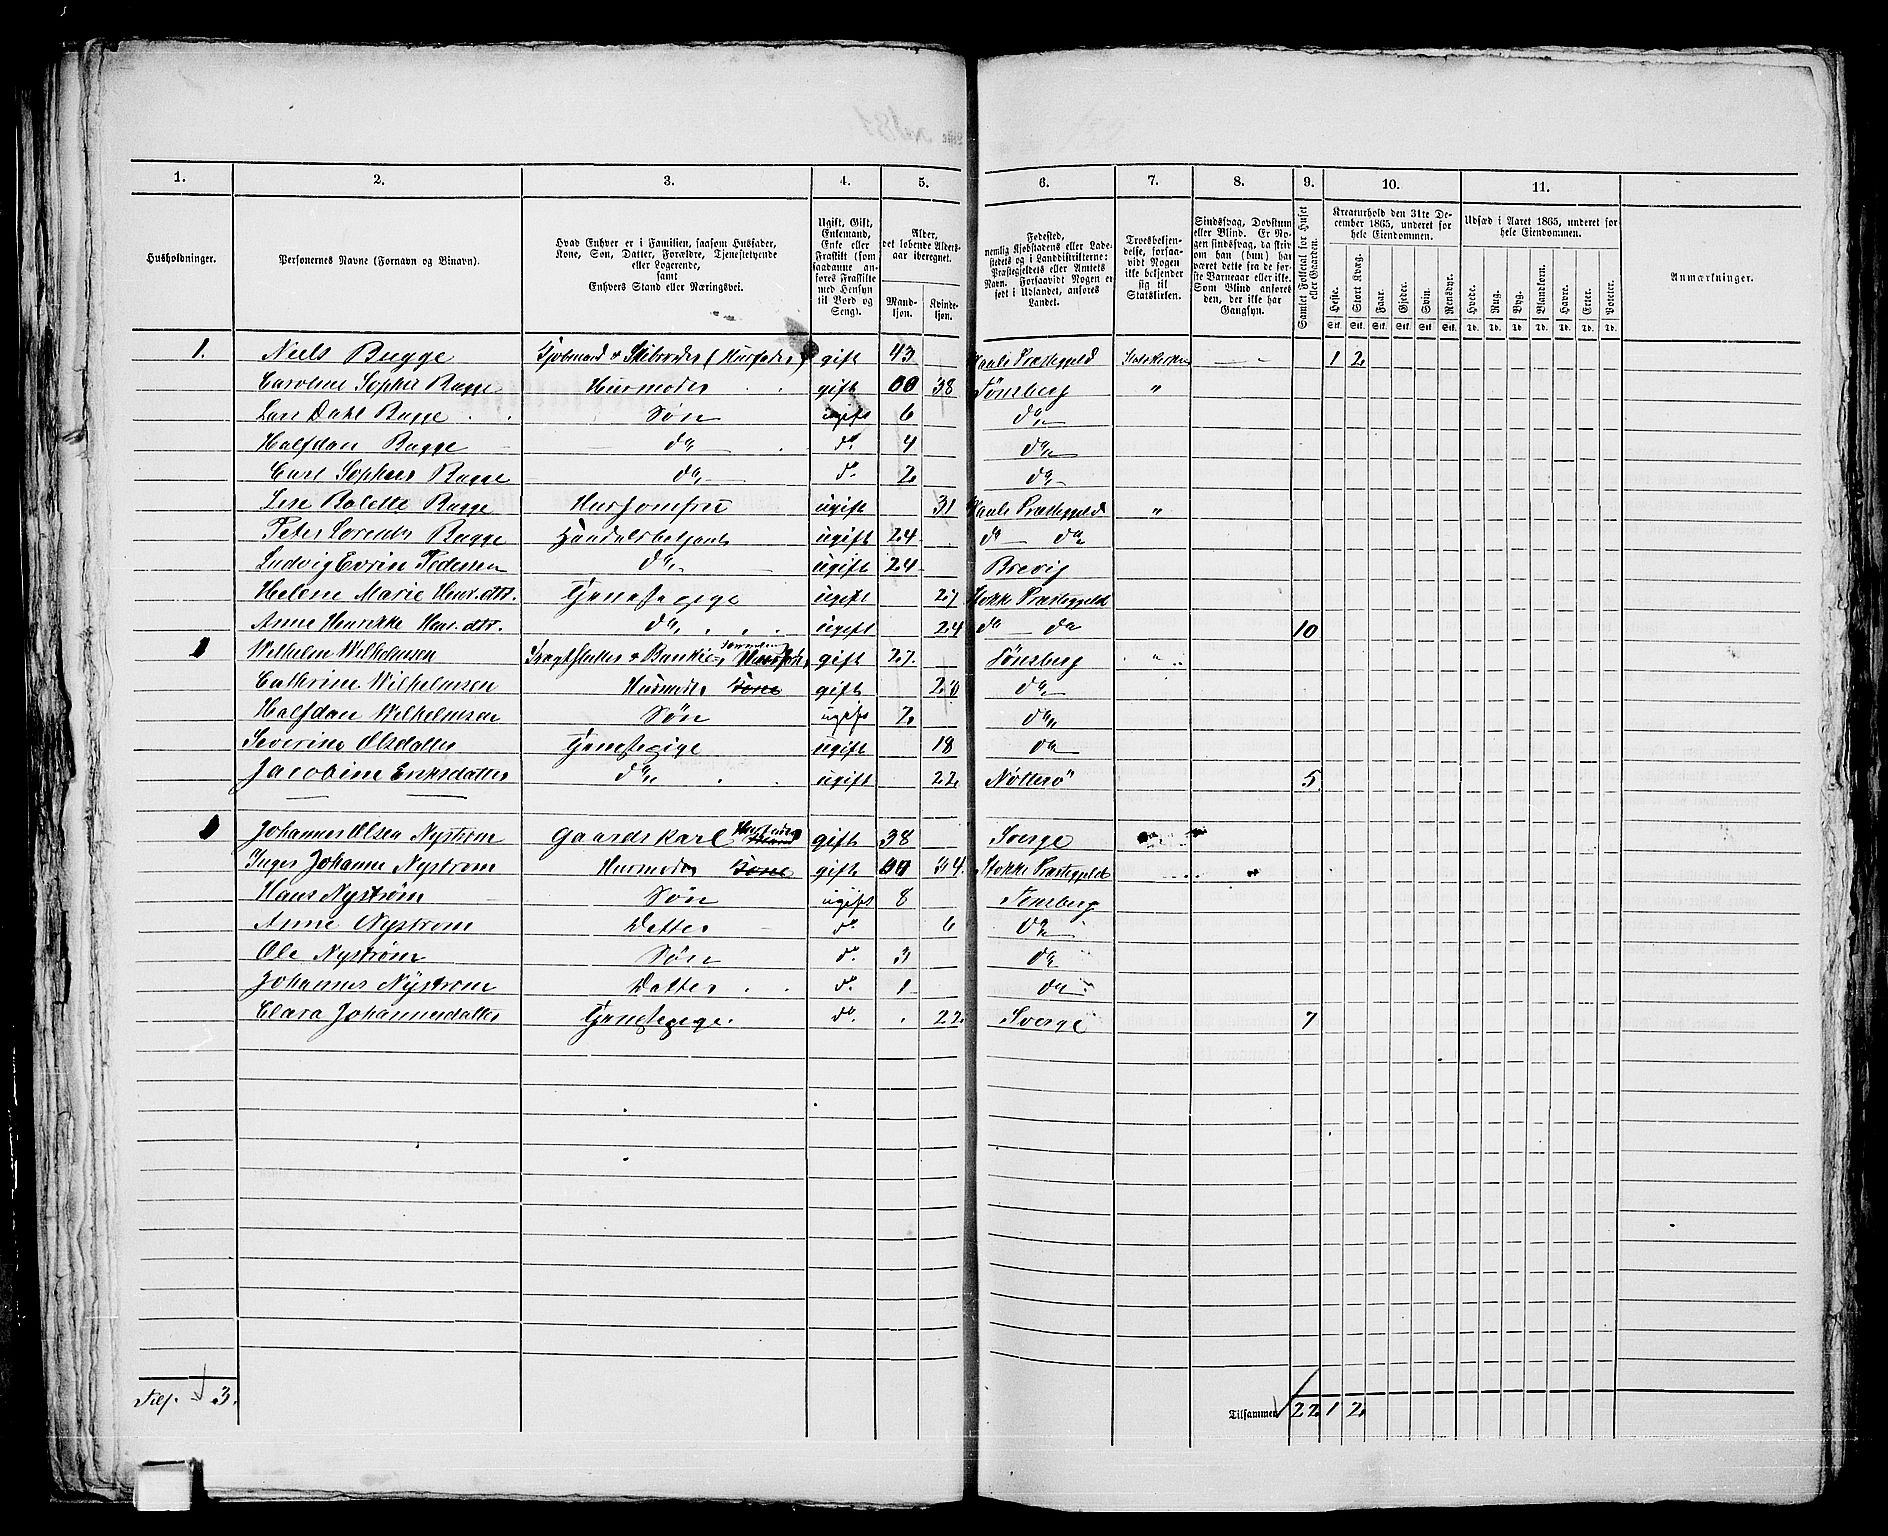 1. 2. 3. 4. 5. 6. 7. 8. 9. 10. 11.
Husholdninger.
Personernes Navne (Fornavn og Binavn).
Hvad Enhver er i Familien, saasom Husfader,
Kone, Søn, Datter, Forældre, Tjenestetyende
eller Logerende,
samt
Enhvers Stand eller Næringsvei.
Ugift, Gift,
Enkemand,
Enke eller
Fraskilt (som
saadanne an-
føres Fraskilte
med Hensyn
til Bord og
Seng).
Alder,
det løbende Alders-
aar iberegnet.
Mand-
kjøn.
Kvinde-
kjøn.
Fødested,
nemlig Kjøbstadens eller Lade-
stedets og i Landdistrikterne:
Præstegjeldets eller Amtets
Navn. Forsaavidt Nogen er
født i Udlandet, anføres
Landet.
Troesbekjen-
delse, forsaa-
vidt Nogen
ikke bekjender
sig til
Statskirken.
Sindssvag, Døvstum
eller Blind. Er No-
gen sindssvag, da skriv
om han (hun) har
været dette fra de før-
ste Barneaar eller ikke.
Som Blind anføres
den, der ikke har
Gangsyn.
Samlet Folketal for Huset
eller Gaarden.
Kreaturhold den 31te De-
cember 1865, underet for
hele Eiendommen.
Heste. Stort Kvæg. Faar. Gjeder. Svin. Rensdyr.
Stk. Stk. Stk. Stk. Stk. Stk.
Udsæd i Aaret 1865, underet for
hele Eiendommen.
Hvede. Rug. Byg. Blandkorn. Havre. Erter. Poteter.
Td. Td. Td. Td. Td. Td. Td.
Anmærkninger.
1. Niels Bugge Kjøbmand & Skibsreder (Husfader) gift 43 Præstegjeld Statskirken 1 2
Caroline Sophie Bugge Husmoder gift 38 Tønsberg "
Lars Dahl Bugge Søn ugift 6 do
Halfdan Bugge do do 4 do
Carl Sophus Bugge do do 2 do
Lise Bolette Bugge Husjomfru ugift 31 Præstegjeld "
Peter Lorentz Bugge Handelsbetjent ugift 24 do do
Ludvig Pedersen do ugift 24 Brevig
Helene Marie Henr.dtr. Tjenestepige ugift 27 Stokke Præstegjeld
Anne Henrikke Henr.dtr. do ugift 24 do do 10
1 Wilhelm Wilhelmsen Husfader gift 27 Tønsberg "
Cathrine Wilhelmsen Husmoder Kone gift do
Halfdan Wilhelmsen Søn ugift 2 do
Severine Olsdatter Tjenestepige ugift 18 do
Jacobine Eriksdatter do ugift 22 Nøtterø 5
1 Johannes Olsen Nystrøm Gaardskarl Husfader gift 38 Sverge
Inger Johanne Nystrøm Husmoder Kone gift 34 Stokke Præstegjeld
Hans Nystrøm Søn ugift 8 Tønsberg
Anne Nystrøm Datter do 6 do
Ole Nystrøm Søn do 3 do
Johannes Nystrøm Datter do 1 do
Clara Johannesdatter Tjenestepige do 22 Sverge 7
Tils. 3.
Tilsammen 22 1 2